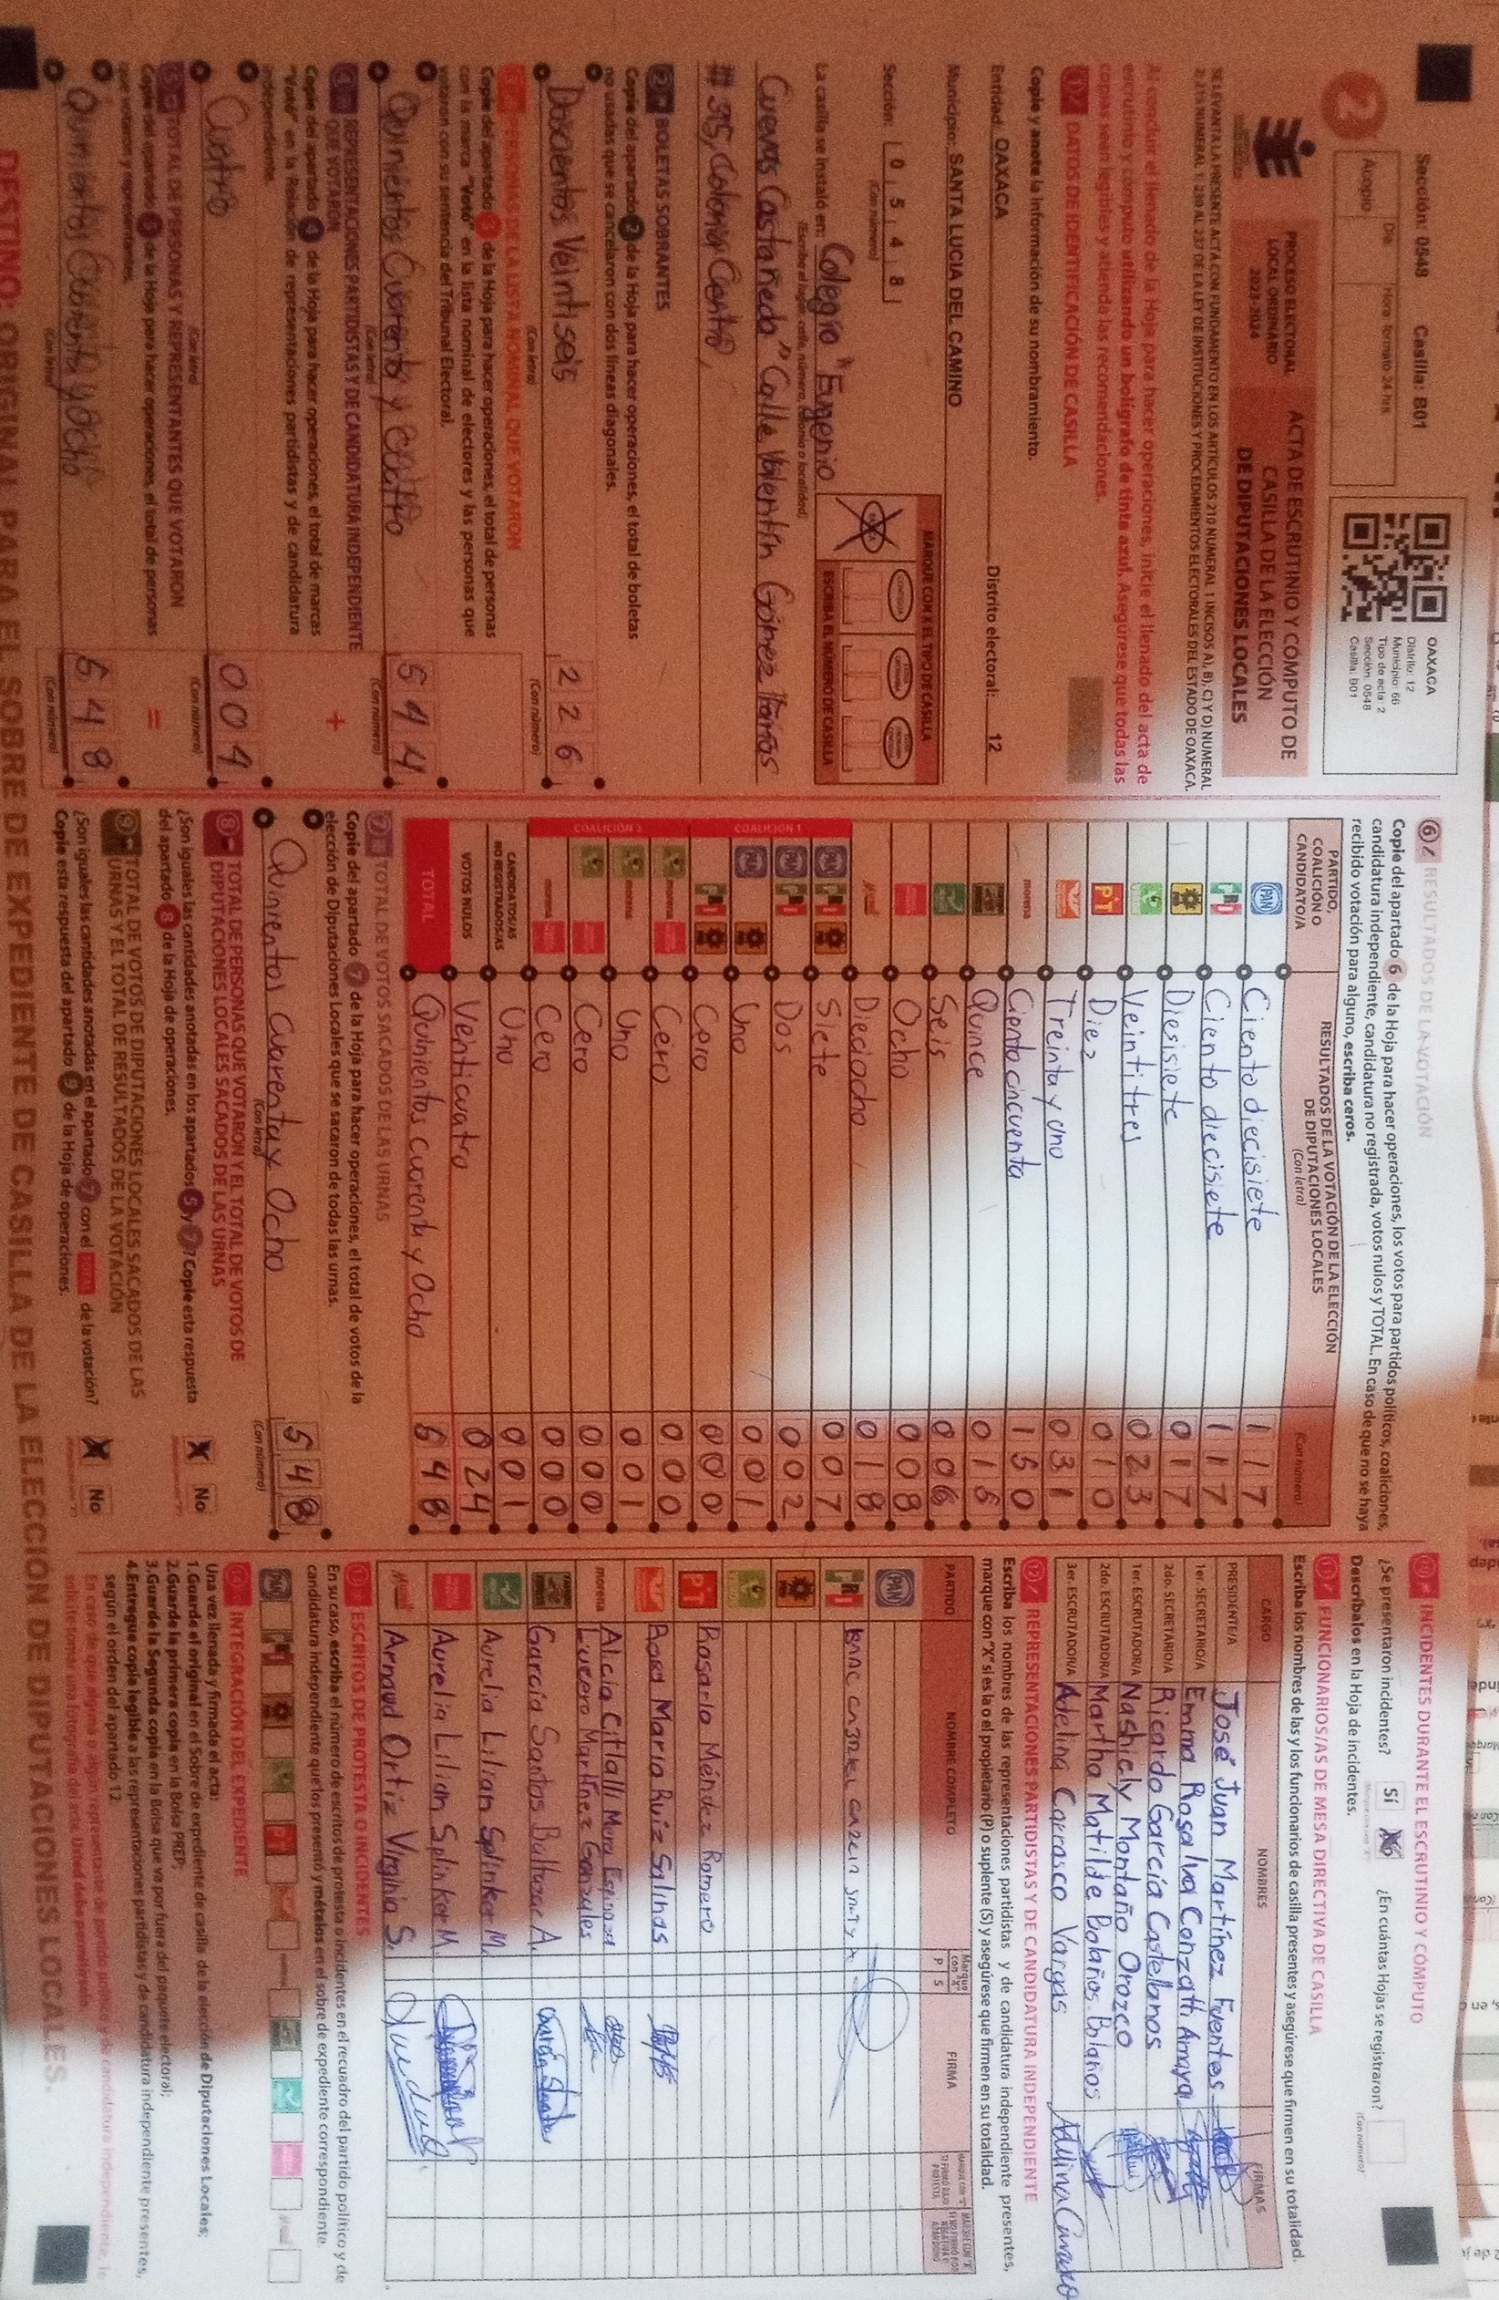 Sección: 0548 Casilla: B01
Día: Hora: formato 24 hrs.
Acopio
2
OAXACA
Distrito: 12
Municipio: 66
Tipo de acta: 2
Sección: 0548
Casilla: B01
PROCESO ELECTORAL
LOCAL ORDINARIO
2023-2024
ACTA DE ESCRUTINIO Y CÓMPUTO DE
CASILLA DE LA ELECCIÓN
DE DIPUTACIONES LOCALES
SE LEVANTA LA PRESENTE ACTA CON FUNDAMENTO EN LOS ARTÍCULOS 219 NUMERAL 1 INCISOS A), B), C) Y D) NUMERAL
2; 215 NUMERAL 1; 230 AL 237 DE LA LEY DE INSTITUCIONES Y PROCEDIMIENTOS ELECTORALES DEL ESTADO DE OAXACA.
Al concluir el llenado de la Hoja para hacer operaciones, inicie el llenado del acta de
escrutinio y cómputo utilizando un bolígrafo de tinta azul. Asegúrese que todas las
copias sean legibles y atienda las recomendaciones.
1 DATOS DE IDENTIFICACIÓN DE CASILLA
Copie y anote la información de su nombramiento.
Entidad: OAXACA Distrito electoral: 12
Municipio: SANTA LUCIA DEL CAMINO
Sección: 0 5 4 8
(Con número)
MARQUE CON X EL TIPO DE CASILLA
ESCRIBA EL NÚMERO DE CASILLA
La casilla se instaló en: Colegio "Eugenio
(Escriba el lugar, calle, número, colonia o localidad)
Cuevas Castañeda" Calle Valentín Gómez Farías
# 315, Colonia Centro,
2 BOLETAS SOBRANTES
Copie del apartado 2 de la Hoja para hacer operaciones, el total de boletas
no usadas que se cancelaron con dos líneas diagonales.
Doscientos Veintiseis 2 2 6
(Con letra) (Con número)
3 PERSONAS DE LA LISTA NOMINAL QUE VOTARON
Copie del apartado 3 de la Hoja para hacer operaciones, el total de personas
con la marca "Votó" en la lista nominal de electores y las personas que
votaron con su sentencia del Tribunal Electoral.
Quinientos Cuarenta y Cuatro 5 4 4
(Con letra) (Con número)
4 REPRESENTACIONES PARTIDISTAS Y DE CANDIDATURA INDEPENDIENTE
QUE VOTARON +
Copie del apartado 4 de la Hoja para hacer operaciones, el total de marcas
"Votó" en la Relación de representaciones partidistas y de candidatura
independiente.
Cuatro 0 0 4
(Con letra) (Con número)
5 TOTAL DE PERSONAS Y REPRESENTANTES QUE VOTARON =
Copie del apartado 5 de la Hoja para hacer operaciones, el total de personas
que votaron y representantes.
Quinientos Cuarenta y Ocho 5 4 8
(Con letra) (Con número)
6 RESULTADOS DE LA VOTACIÓN
Copie del apartado 6 de la Hoja para hacer operaciones, los votos para partidos políticos, coaliciones,
candidatura independiente, candidatura no registrada, votos nulos y TOTAL. En caso de que no se haya
recibido votación para alguno, escriba ceros.
PARTIDO,
COALICIÓN O
CANDIDATO/A
RESULTADOS DE LA VOTACIÓN DE LA ELECCIÓN
DE DIPUTACIONES LOCALES
(Con letra) (Con número)
PAN Ciento diecisiete 1 1 7
PRI Ciento diecisiete 1 1 7
Diesisiete 0 1 7
Veintitres 0 2 3
PT Diez 0 1 0
Treinta y uno 0 3 1
morena Ciento cincuenta 1 5 0
Quince 0 1 5
Seis 0 0 6
Ocho 0 0 8
Dieciocho 0 1 8
COALICIÓN 1
PAN PRI Siete 0 0 7
PAN PRI Dos 0 0 2
PAN Uno 0 0 1
PRI Cero 0 0 0
COALICIÓN 2
morena Cero 0 0 0
morena Uno 0 0 1
Cero 0 0 0
morena Cero 0 0 0
CANDIDATOS/AS
NO REGISTRADOS/AS Uno 0 0 1
VOTOS NULOS Venticuatro 0 2 4
TOTAL Quinientos cuarenta y Ocho 5 4 8
7 TOTAL DE VOTOS SACADOS DE LAS URNAS
Copie del apartado 7 de la Hoja para hacer operaciones, el total de votos de la
elección de Diputaciones Locales que se sacaron de todas las urnas.
Quinientos cuarenta y Ocho 5 4 8
(Con letra) (Con número)
8 TOTAL DE PERSONAS QUE VOTARON Y EL TOTAL DE VOTOS DE
DIPUTACIONES LOCALES SACADOS DE LAS URNAS
¿Son iguales las cantidades anotadas en los apartados 5 y 7? Copie esta respuesta
del apartado 8 de la Hoja de operaciones.
No
9 TOTAL DE VOTOS DE DIPUTACIONES LOCALES SACADOS DE LAS
URNAS Y EL TOTAL DE RESULTADOS DE LA VOTACIÓN
¿Son iguales las cantidades anotadas en el apartado 7 con el TOTAL de la votación?
Copie esta respuesta del apartado 9 de la Hoja de operaciones.
No
10 INCIDENTES DURANTE EL ESCRUTINIO Y CÓMPUTO
¿Se presentaron incidentes? Sí No ¿En cuántas Hojas se registraron?
(Con número)
Descríbalos en la Hoja de incidentes.
11 FUNCIONARIOS/AS DE MESA DIRECTIVA DE CASILLA
Escriba los nombres de las y los funcionarios de casilla presentes y asegúrese que firmen en su totalidad.
CARGO NOMBRES FIRMAS
PRESIDENTE/A José Juan Martínez Fuentes
1er. SECRETARIO/A Emma Rosalva Conzatti Amaya
2do. SECRETARIO/A Ricardo García Castellanos
1er. ESCRUTADOR/A Nashiely Montaño Orozco
2do. ESCRUTADOR/A Martha Matilde Bolaños. Bolaños
3er. ESCRUTADOR/A Adelina Carrasco Vargas Adelina Carrasco
12 REPRESENTACIONES PARTIDISTAS Y DE CANDIDATURA INDEPENDIENTE
Escriba los nombres de las representaciones partidistas y de candidatura independiente presentes,
marque con "X" si es la o el propietario (P) o suplente (S) y asegúrese que firmen en su totalidad.
PARTIDO NOMBRE COMPLETO Marque con "X" P S FIRMA
PAN
PRI
PT Rosario Méndez Romero
Rosa María Ruiz Salinas
morena Alicia Citlalli Mora
Lucero Martínez Gonzales
García Santos Baltazar A.
Aurelia Lilian Splinker M.
Aurelia Lilian Splinker M.
Arnaud Ortiz Virginia S.
13 ESCRITOS DE PROTESTA O INCIDENTES
En su caso, escriba el número de escritos de protesta o incidentes en el recuadro del partido político y de
candidatura independiente que los presentó y métalos en el sobre de expediente correspondiente.
INTEGRACIÓN DEL EXPEDIENTE
Una vez llenada y firmada el acta:
1.Guarde el original en el Sobre de expediente de casilla de la elección de Diputaciones Locales;
2.Guarde la primera copia en la Bolsa PREP;
3.Guarde la Segunda copia en la Bolsa que va por fuera del paquete electoral;
4.Entregue copia legible a las representaciones partidistas y de candidatura independiente presentes,
según el orden del apartado 12.
DESTINO: ORIGINAL PARA EL SOBRE DE EXPEDIENTE DE CASILLA DE LA ELECCIÓN DE DIPUTACIONES LOCALES.